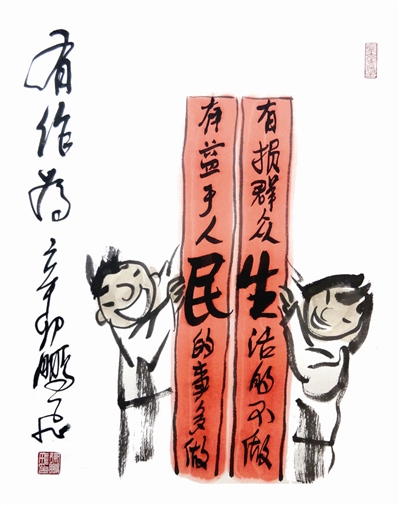 有作为
辛卯鹏飞
有益于人民的事多做
有损群众生活的不做